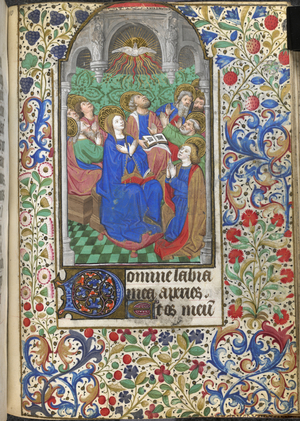 Domine labia
mea aperies.
et os meū